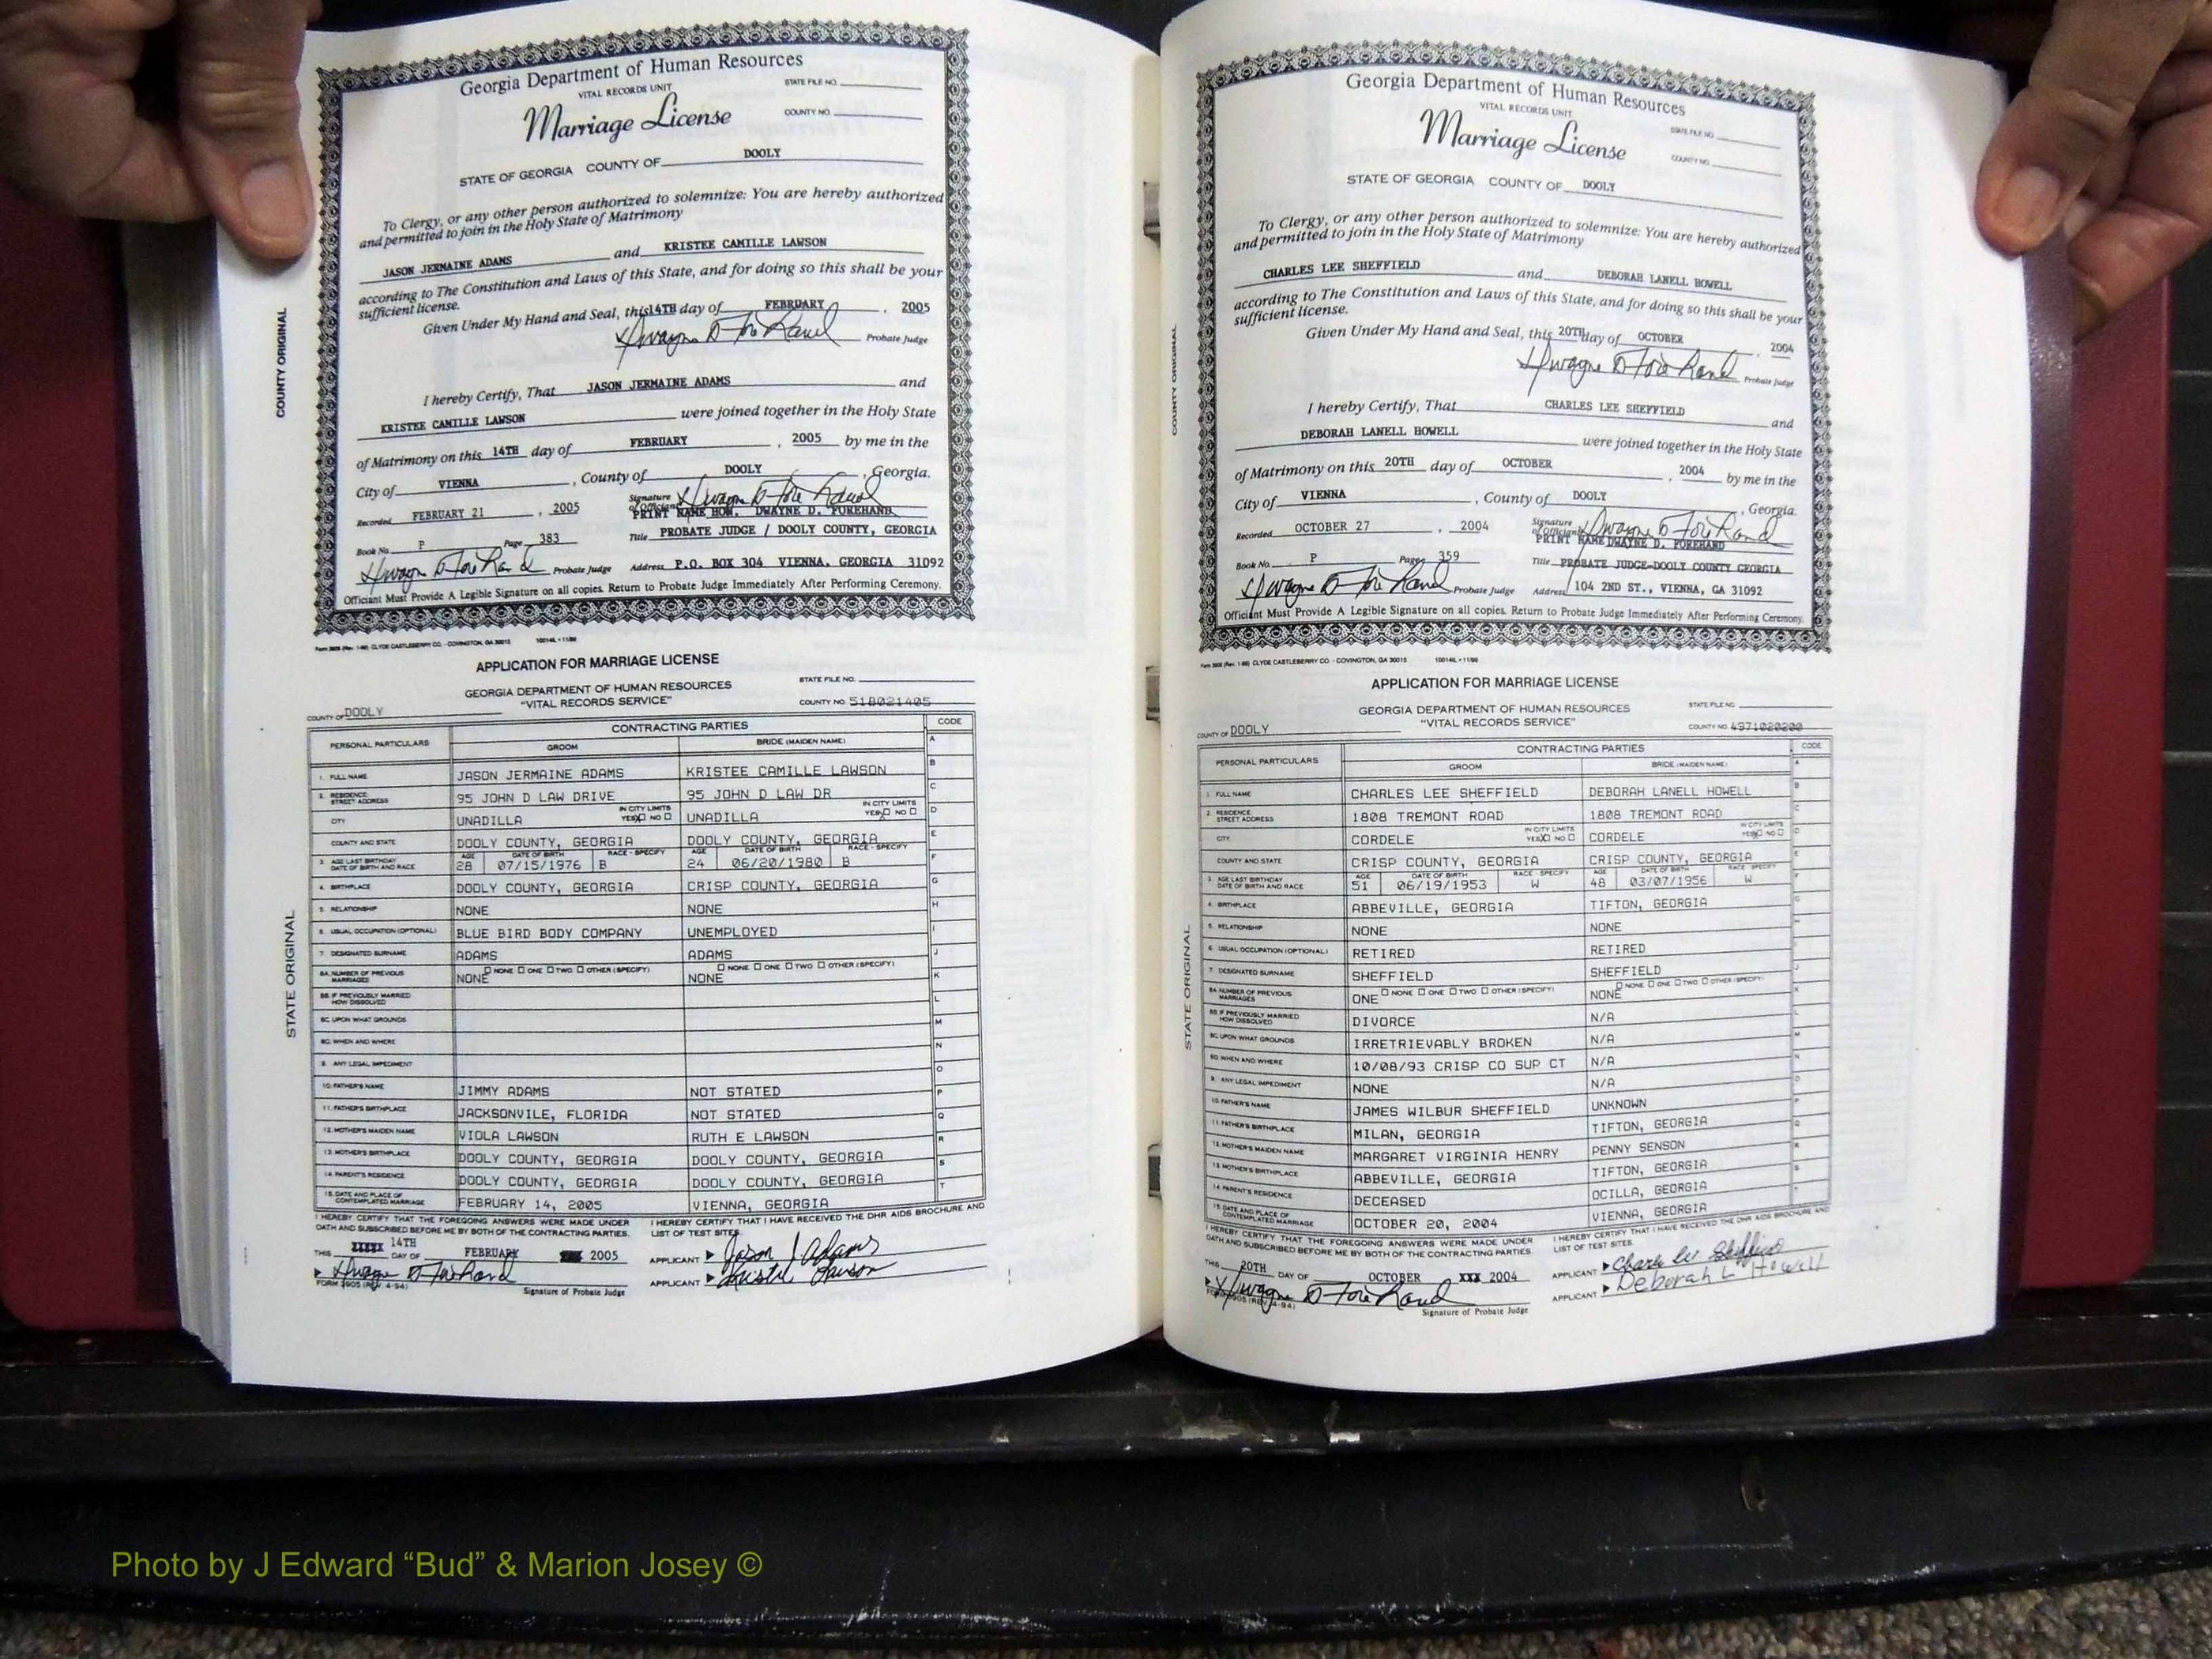 Georgia Department of Human Resources
VITAL RECORDS UNIT
STATE FILE NO.
Marriage License
COUNTY NO.
STATE OF GEORGIA COUNTY OF DOOLY
To Clergy, or any other person authorized to solemnize: You are hereby authorized
and permitted to join in the Holy State of Matrimony
JASON JERMAINE ADAMS and KRISTEE CAMILLE LAWSON
according to The Constitution and Laws of this State, and for doing so this shall be your
sufficient license.
Given Under My Hand and Seal, this 14TH day of FEBRUARY, 2005
Dwayne D Forehand Probate Judge
COUNTY ORIGINAL
I hereby Certify, That JASON JERMAINE ADAMS and
KRISTEE CAMILLE LAWSON were joined together in the Holy State
of Matrimony on this 14TH day of FEBRUARY, 2005 by me in the
City of VIENNA, County of DOOLY, Georgia.
Signature of Officiant Dwayne D Forehand
Recorded FEBRUARY 21, 2005 PRINT NAME HON. DWAYNE D. FOREHAND
Title PROBATE JUDGE / DOOLY COUNTY, GEORGIA
Book No. P Page 383
Dwayne D Forehand Probate Judge Address P.O. BOX 304 VIENNA, GEORGIA 31092
Officiant Must Provide A Legible Signature on all copies. Return to Probate Judge Immediately After Performing Ceremony.
Form 3908 (Rev. 1-98) CLYDE CASTLEBERRY CO. - COVINGTON, GA 30015 10014L • 11/98
APPLICATION FOR MARRIAGE LICENSE
GEORGIA DEPARTMENT OF HUMAN RESOURCES
"VITAL RECORDS SERVICE"
STATE FILE NO.
COUNTY NO. 518021405
COUNTY OF DOOLY
STATE ORIGINAL
PERSONAL PARTICULARS CONTRACTING PARTIES CODE
GROOM BRIDE (MAIDEN NAME)
1. FULL NAME JASON JERMAINE ADAMS KRISTEE CAMILLE LAWSON
2. RESIDENCE STREET ADDRESS 95 JOHN D LAW DRIVE 95 JOHN D LAW DR
CITY UNADILLA IN CITY LIMITS YES X NO UNADILLA IN CITY LIMITS YES X NO
COUNTY AND STATE DOOLY COUNTY, GEORGIA DOOLY COUNTY, GEORGIA
3. AGE LAST BIRTHDAY DATE OF BIRTH AND RACE AGE 28 DATE OF BIRTH 07/15/1976 RACE - SPECIFY B AGE 24 DATE OF BIRTH 06/20/1980 RACE - SPECIFY B
4. BIRTHPLACE DOOLY COUNTY, GEORGIA CRISP COUNTY, GEORGIA
5. RELATIONSHIP NONE NONE
6. USUAL OCCUPATION (OPTIONAL) BLUE BIRD BODY COMPANY UNEMPLOYED
7. DESIGNATED SURNAME ADAMS ADAMS
8A. NUMBER OF PREVIOUS MARRIAGES NONE □ NONE □ ONE □ TWO □ OTHER (SPECIFY) NONE □ NONE □ ONE □ TWO □ OTHER (SPECIFY)
8B. IF PREVIOUSLY MARRIED HOW DISSOLVED
8C. UPON WHAT GROUNDS
8D. WHEN AND WHERE
9. ANY LEGAL IMPEDIMENT
10. FATHER'S NAME JIMMY ADAMS NOT STATED
11. FATHER'S BIRTHPLACE JACKSONVILE, FLORIDA NOT STATED
12. MOTHER'S MAIDEN NAME VIOLA LAWSON RUTH E LAWSON
13. MOTHER'S BIRTHPLACE DOOLY COUNTY, GEORGIA DOOLY COUNTY, GEORGIA
14. PARENT'S RESIDENCE DOOLY COUNTY, GEORGIA DOOLY COUNTY, GEORGIA
15. DATE AND PLACE OF CONTEMPLATED MARRIAGE FEBRUARY 14, 2005 VIENNA, GEORGIA
A B C D E F G H I J K L M N O P Q R S T
I HEREBY CERTIFY THAT THE FOREGOING ANSWERS WERE MADE UNDER
OATH AND SUBSCRIBED BEFORE ME BY BOTH OF THE CONTRACTING PARTIES.
I HEREBY CERTIFY THAT I HAVE RECEIVED THE DHR AIDS BROCHURE AND
LIST OF TEST SITES.
THIS XXXXX 14TH DAY OF FEBRUARY 2005
APPLICANT Jason J Adams
APPLICANT Kristee Lawson
Dwayne D Forehand
FORM 3905 (REV. 4-94) Signature of Probate Judge
Georgia Department of Human Resources
VITAL RECORDS UNIT
STATE FILE NO.
Marriage License
COUNTY NO.
STATE OF GEORGIA COUNTY OF DOOLY
To Clergy, or any other person authorized to solemnize: You are hereby authorized
and permitted to join in the Holy State of Matrimony
CHARLES LEE SHEFFIELD and DEBORAH LANELL HOWELL
according to The Constitution and Laws of this State, and for doing so this shall be your
sufficient license.
Given Under My Hand and Seal, this 20TH day of OCTOBER, 2004
Dwayne D Forehand Probate Judge
COUNTY ORIGINAL
I hereby Certify, That CHARLES LEE SHEFFIELD and
DEBORAH LANELL HOWELL were joined together in the Holy State
of Matrimony on this 20TH day of OCTOBER, 2004 by me in the
City of VIENNA, County of DOOLY, Georgia.
Signature of Officiant Dwayne D Forehand
Recorded OCTOBER 27, 2004 PRINT NAME DWAYNE D. FOREHAND
Book No. P Page 359 Title PROBATE JUDGE-DOOLY COUNTY GEORGIA
Dwayne D Forehand Probate Judge Address 104 2ND ST., VIENNA, GA 31092
Officiant Must Provide A Legible Signature on all copies. Return to Probate Judge Immediately After Performing Ceremony.
Form 3908 (Rev. 1-98) CLYDE CASTLEBERRY CO. - COVINGTON, GA 30015 10014L • 11/98
APPLICATION FOR MARRIAGE LICENSE
GEORGIA DEPARTMENT OF HUMAN RESOURCES
"VITAL RECORDS SERVICE"
STATE FILE NO.
COUNTY NO. 4971020200
COUNTY OF DOOLY
STATE ORIGINAL
PERSONAL PARTICULARS CONTRACTING PARTIES CODE
GROOM BRIDE (MAIDEN NAME)
1. FULL NAME CHARLES LEE SHEFFIELD DEBORAH LANELL HOWELL
2. RESIDENCE STREET ADDRESS 1808 TREMONT ROAD 1808 TREMONT ROAD
CITY CORDELE IN CITY LIMITS YES X NO CORDELE IN CITY LIMITS YES X NO
COUNTY AND STATE CRISP COUNTY, GEORGIA CRISP COUNTY, GEORGIA
3. AGE LAST BIRTHDAY DATE OF BIRTH AND RACE AGE 51 DATE OF BIRTH 06/19/1953 RACE - SPECIFY W AGE 48 DATE OF BIRTH 03/07/1956 RACE SPECIFY W
4. BIRTHPLACE ABBEVILLE, GEORGIA TIFTON, GEORGIA
5. RELATIONSHIP NONE NONE
6. USUAL OCCUPATION (OPTIONAL) RETIRED RETIRED
7. DESIGNATED SURNAME SHEFFIELD SHEFFIELD
8A. NUMBER OF PREVIOUS MARRIAGES ONE □ NONE □ ONE □ TWO □ OTHER (SPECIFY) NONE □ NONE □ ONE □ TWO □ OTHER (SPECIFY)
8B. IF PREVIOUSLY MARRIED HOW DISSOLVED DIVORCE N/A
8C. UPON WHAT GROUNDS IRRETRIEVABLY BROKEN N/A
8D. WHEN AND WHERE 10/08/93 CRISP CO SUP CT N/A
9. ANY LEGAL IMPEDIMENT NONE N/A
10. FATHER'S NAME JAMES WILBUR SHEFFIELD UNKNOWN
11. FATHER'S BIRTHPLACE MILAN, GEORGIA TIFTON, GEORGIA
12. MOTHER'S MAIDEN NAME MARGARET VIRGINIA HENRY PENNY SENSON
13. MOTHER'S BIRTHPLACE ABBEVILLE, GEORGIA TIFTON, GEORGIA
14. PARENT'S RESIDENCE DECEASED OCILLA, GEORGIA
15. DATE AND PLACE OF CONTEMPLATED MARRIAGE OCTOBER 20, 2004 VIENNA, GEORGIA
I HEREBY CERTIFY THAT THE FOREGOING ANSWERS WERE MADE UNDER
OATH AND SUBSCRIBED BEFORE ME BY BOTH OF THE CONTRACTING PARTIES.
I HEREBY CERTIFY THAT I HAVE RECEIVED THE DHR AIDS BROCHURE AND
LIST OF TEST SITES.
THIS 20TH DAY OF OCTOBER XXX 2004
APPLICANT Sheffield
APPLICANT Deborah L Howell
Dwayne D Forehand
FORM 3905 (REV. 4-94) Signature of Probate Judge
Photo by J Edward “Bud” & Marion Josey ©